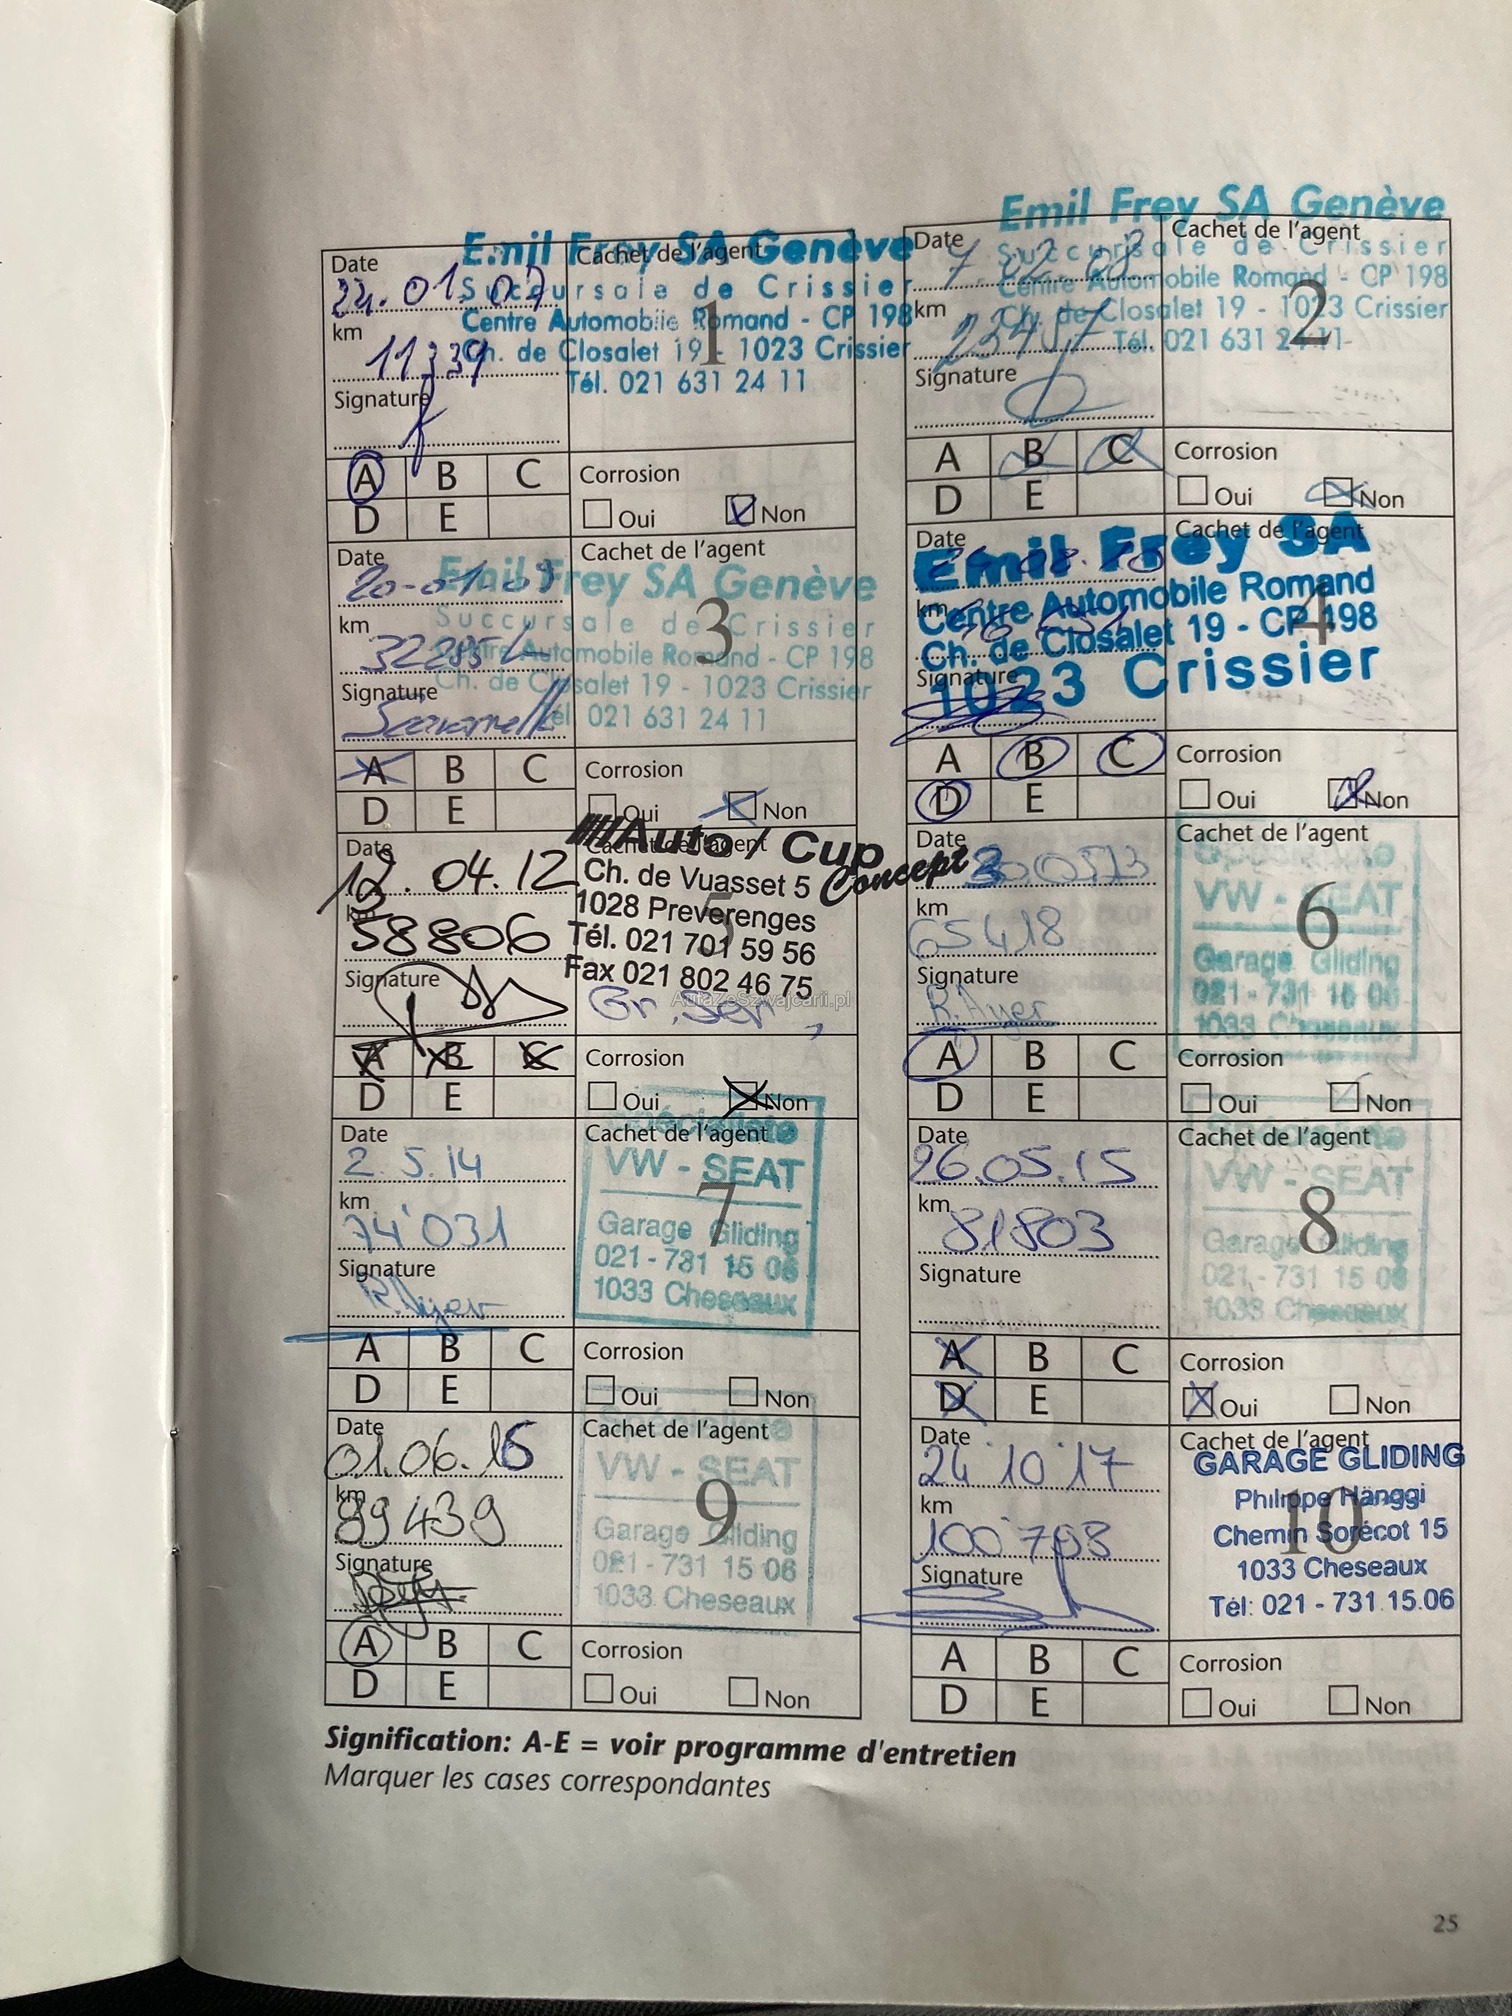 Emil Frey SA Genève
Succursale de Crissier
Centre Automobile Romand - CP 198
Ch. de Closalet 19 - 1023 Crissier
Tél. 021 631 24 11
Date
Cachet de l'agent
1
.01.07
km
11339
Signature
A B C
D E
Corrosion
Oui Non
Emil Frey SA Genève
Succursale de Crissier
Centre Automobile Romand - CP 198
Ch. de Closalet 19 - 1023 Crissier
Tél. 021 631 24 11
Date
Cachet de l'agent
2
7 02 08
km
Signature
A B C
D E
Corrosion
Oui Non
Date
Cachet de l'agent
3
20-01-09
Emil Frey SA Genève
Succursale de Crissier
Centre Automobile Romand - CP 198
Ch. de Closalet 19 - 1023 Crissier
Tél. 021 631 24 11
km
32285
Signature
A B C
D E
Corrosion
Oui Non
Date
Cachet de l'agent
4
Emil Frey SA
Centre Automobile Romand
Ch. de Closalet 19 - CP 198
1023 Crissier
km
Signature
A B C
D E
Corrosion
Oui Non
Date
Cachet de l'agent
5
12.04.12
Auto / Cup
Concept
Ch. de Vuasset 5
1028 Preverenges
Tél. 021 701 59 56
Fax 021 802 46 75
km
58806
Signature
Gr. Ser
AutaZeSzwajcarii.pl
A B C
D E
Corrosion
Oui Non
Date
Cachet de l'agent
6
30.05.13
Spécialiste
VW - SEAT
Garage Gliding
021 - 731 15 06
1033 Cheseaux
km
65418
Signature
R. Ayer
A B C
D E
Corrosion
Oui Non
Date
Cachet de l'agent
7
2.5.14
Spécialiste
VW - SEAT
Garage Gliding
021 - 731 15 06
1033 Cheseaux
km
74'031
Signature
R. Ayer
A B C
D E
Corrosion
Oui Non
Date
Cachet de l'agent
8
26.05.15
Spécialiste
VW - SEAT
Garage Gliding
021 - 731 15 06
1033 Cheseaux
km
81803
Signature
A B C
D E
Corrosion
Oui Non
Date
Cachet de l'agent
9
01.06.16
Spécialiste
VW - SEAT
Garage Gliding
021 - 731 15 06
1033 Cheseaux
km
89439
Signature
A B C
D E
Corrosion
Oui Non
Date
Cachet de l'agent
10
24'10'17
GARAGE GLIDING
Philippe Hänggi
Chemin Sorécot 15
1033 Cheseaux
Tél: 021 - 731.15.06
km
100'798
Signature
A B C
D E
Corrosion
Oui Non
Signification: A-E = voir programme d'entretien
Marquer les cases correspondantes
25